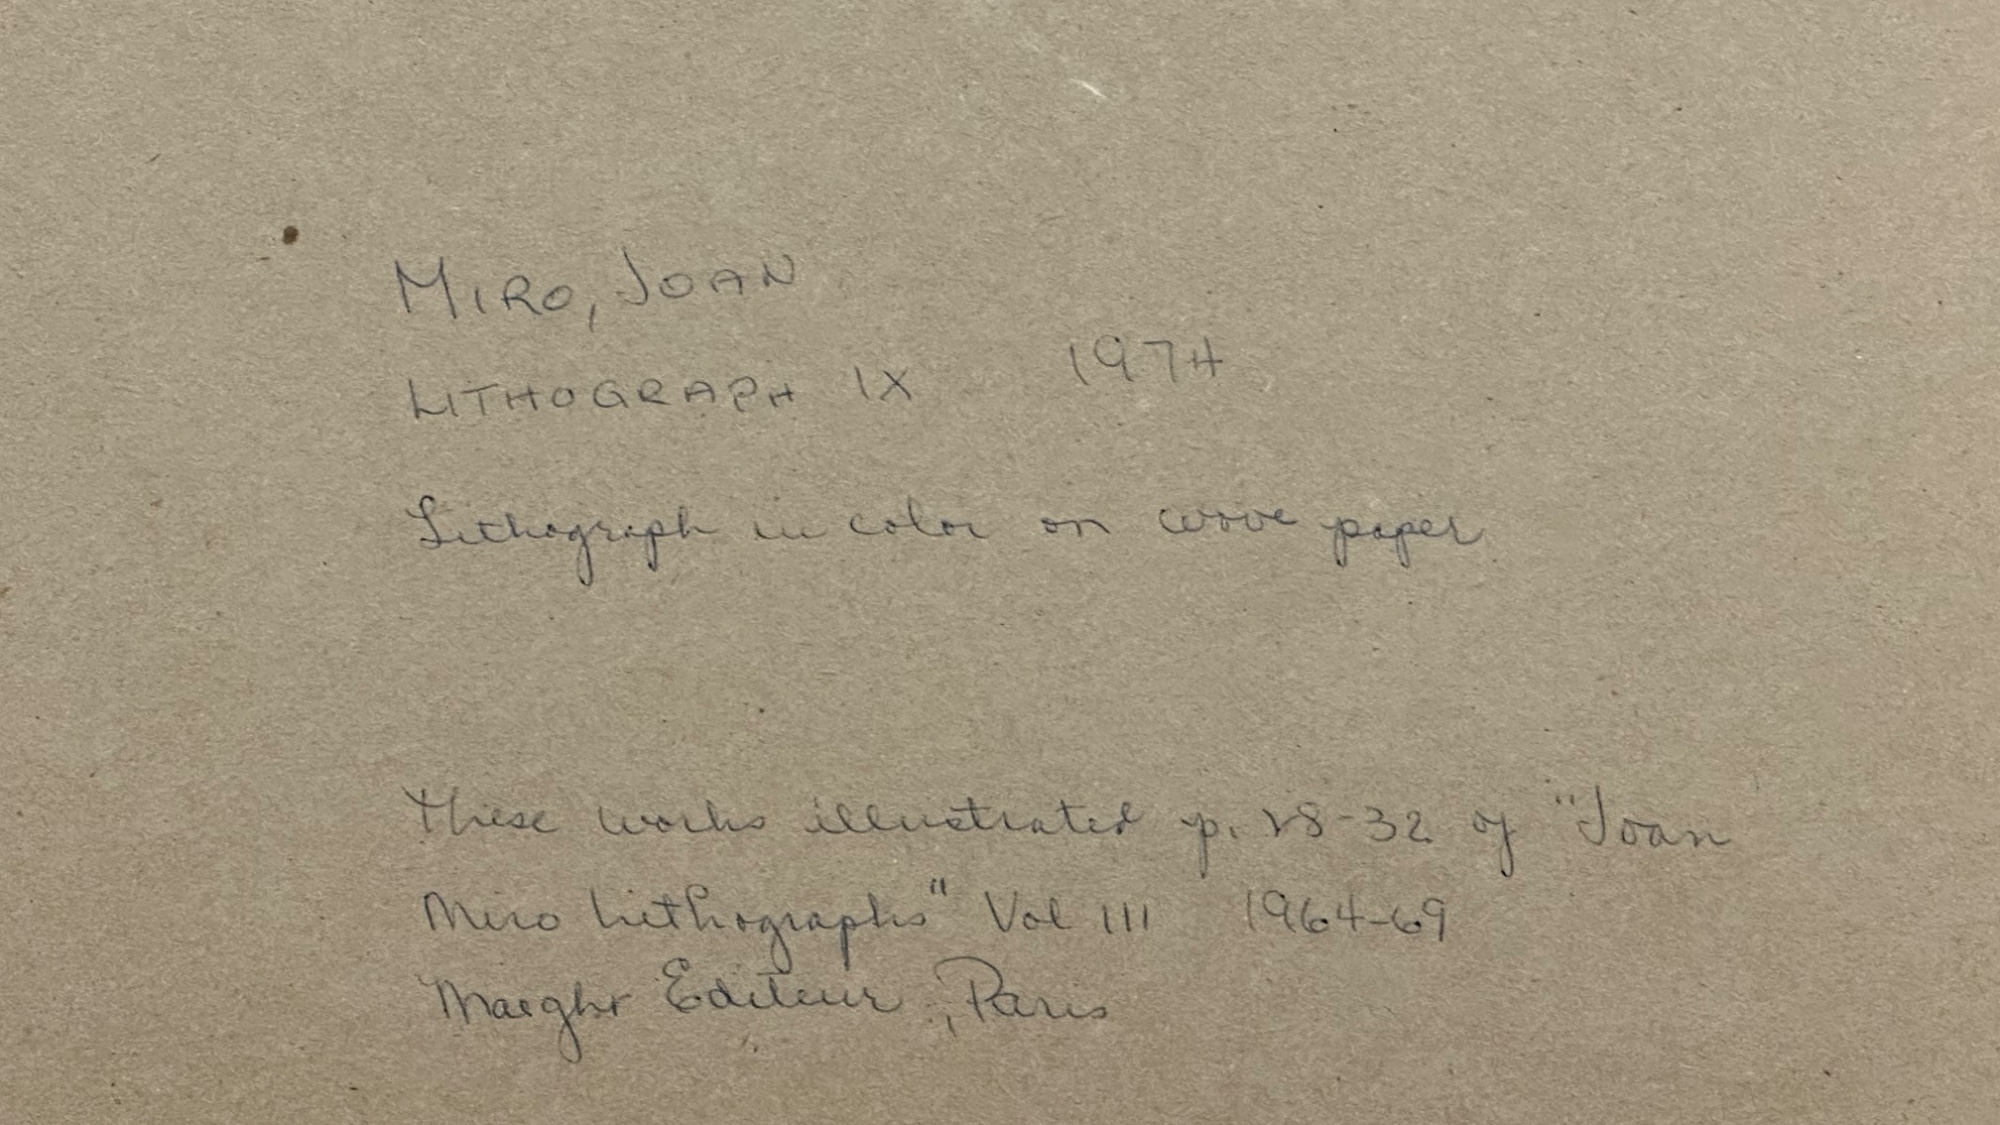 MIRO, JOAN
LITHOGRAPH IX 1974
Lithograph in color on wove paper
These works illustrated p. 28-32 of "Joan
Miro Lithographs" Vol III 1964-69
Maeght Editeur, Paris